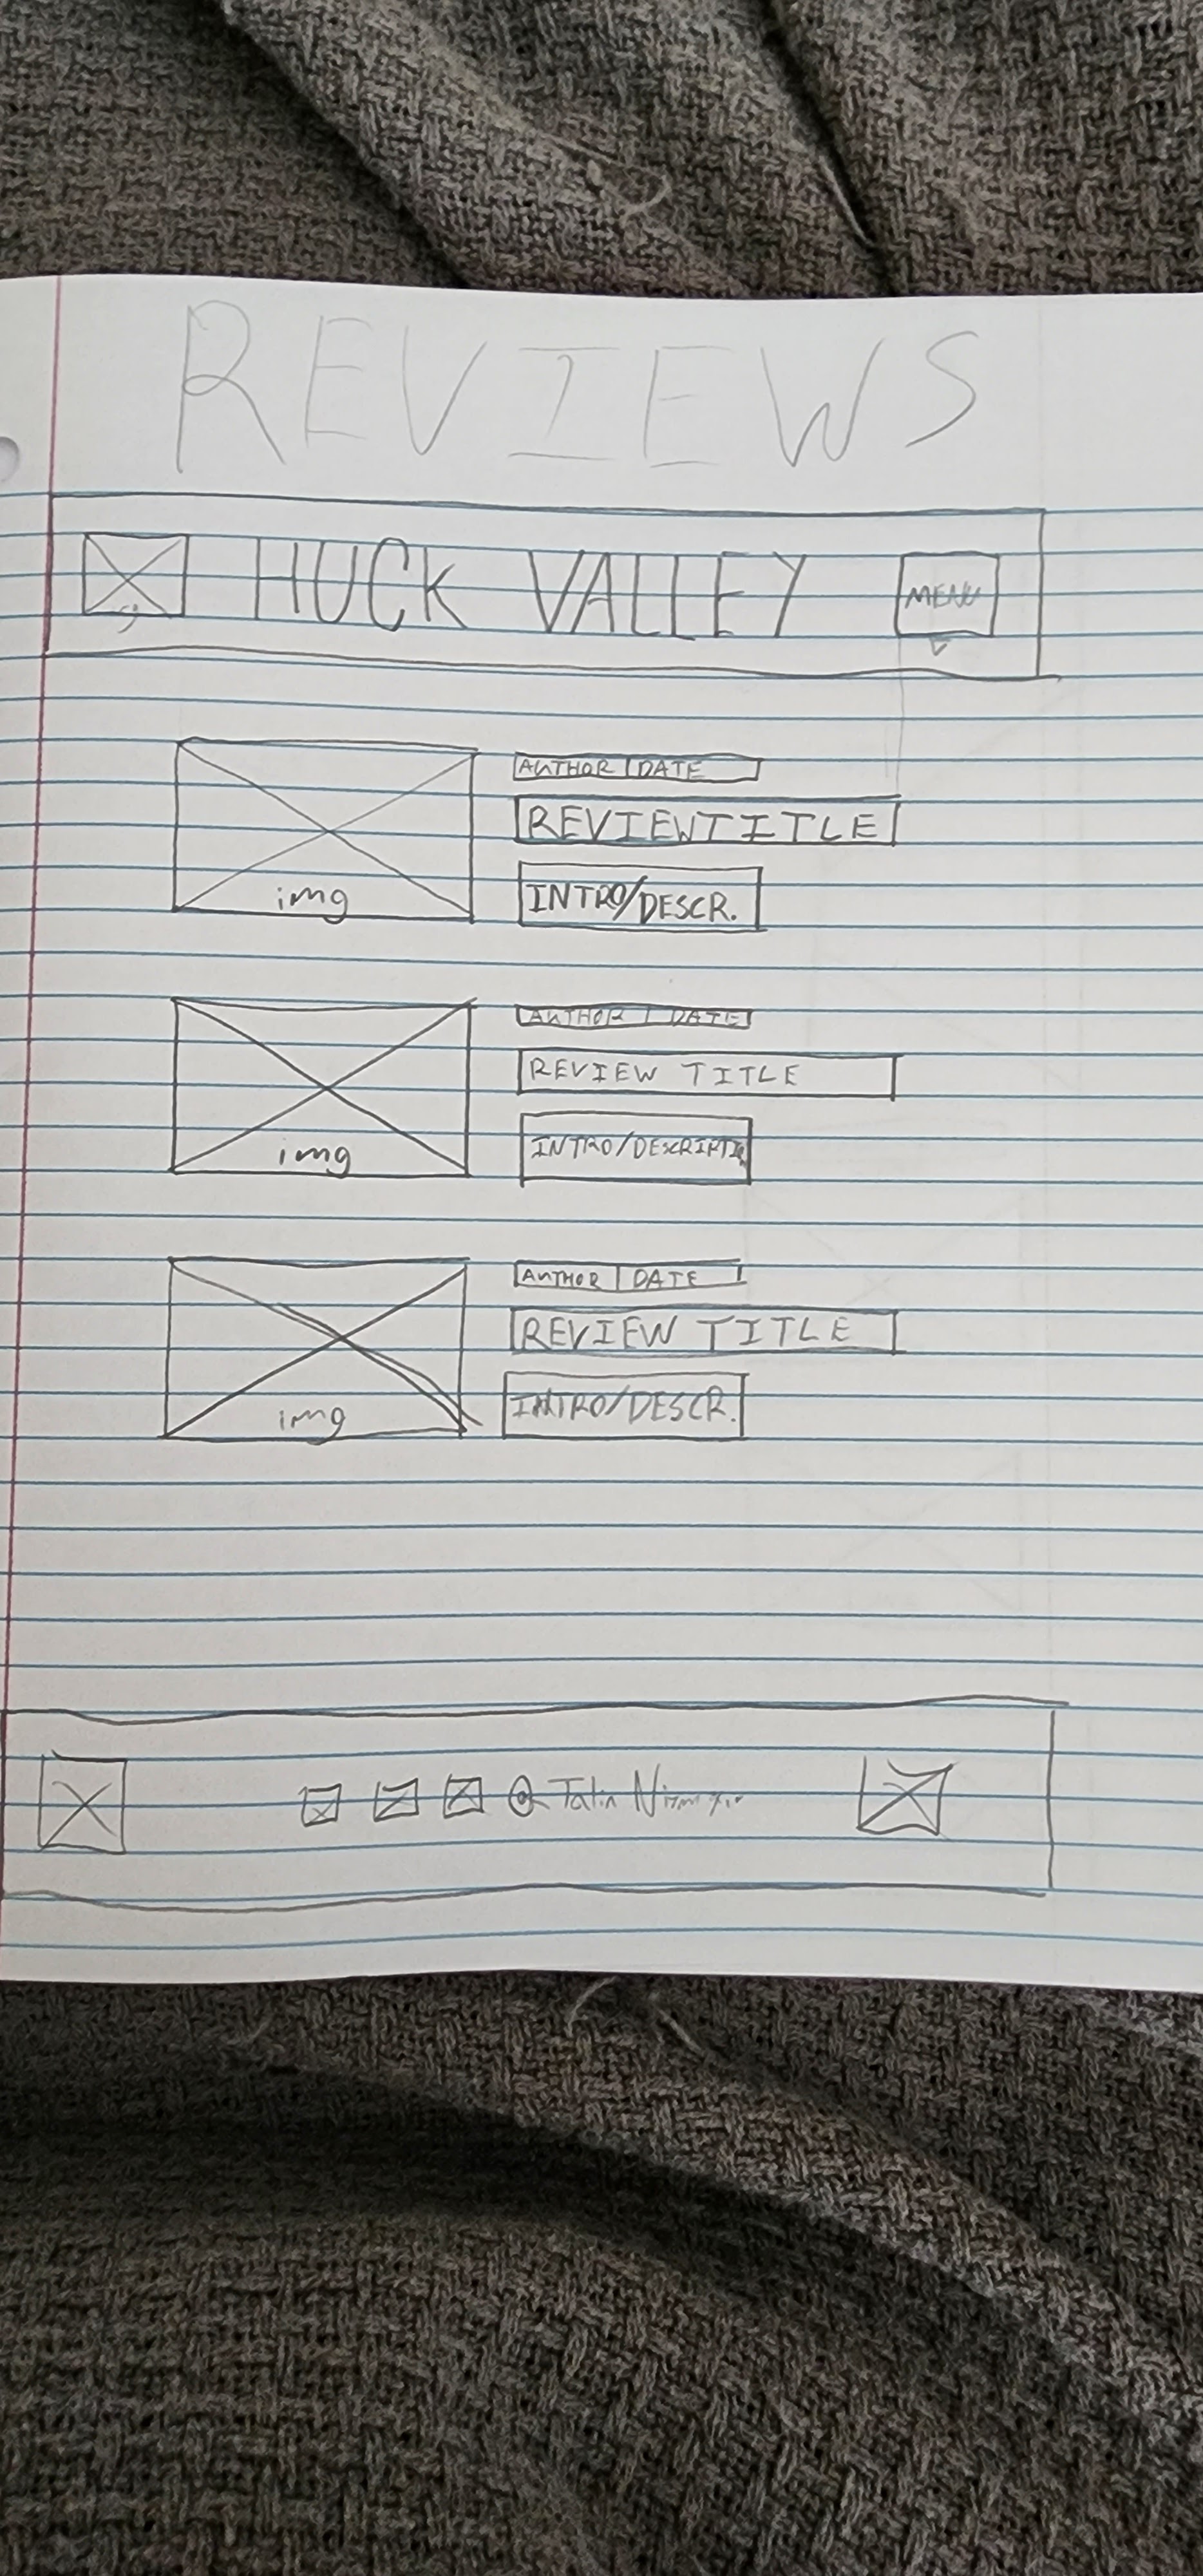 REVIEWS
HUCK VALLEY MENU
AUTHOR | DATE
REVIEW TITLE
INTRO/DESCR.
img
AUTHOR | DATE
REVIEW TITLE
INTRO/DESCRIPTION
img
AUTHOR | DATE
REVIEW TITLE
INTRO/DESCR.
img
Talin